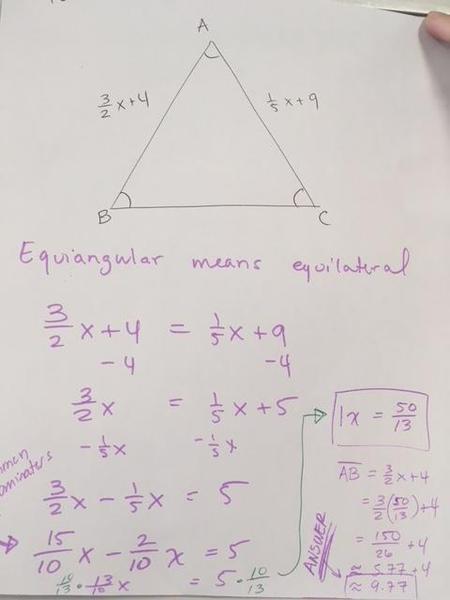 A
3/2 x + 4
1/5 x + 9
B
C
Equiangular means equilateral
3/2 x + 4 = 1/5 x + 9
-4 -4
3/2 x = 1/5 x + 5
-1/5 x -1/5 x
3/2 x - 1/5 x = 5
15/10 x - 2/10 x = 5
10/13 · 13/10 x = 5 · 10/13
x = 50/13
AB = 3/2 x + 4
= 3/2 (50/13) + 4
= 150/26 + 4
≈ 5.77 + 4
≈ 9.77
ANSWER